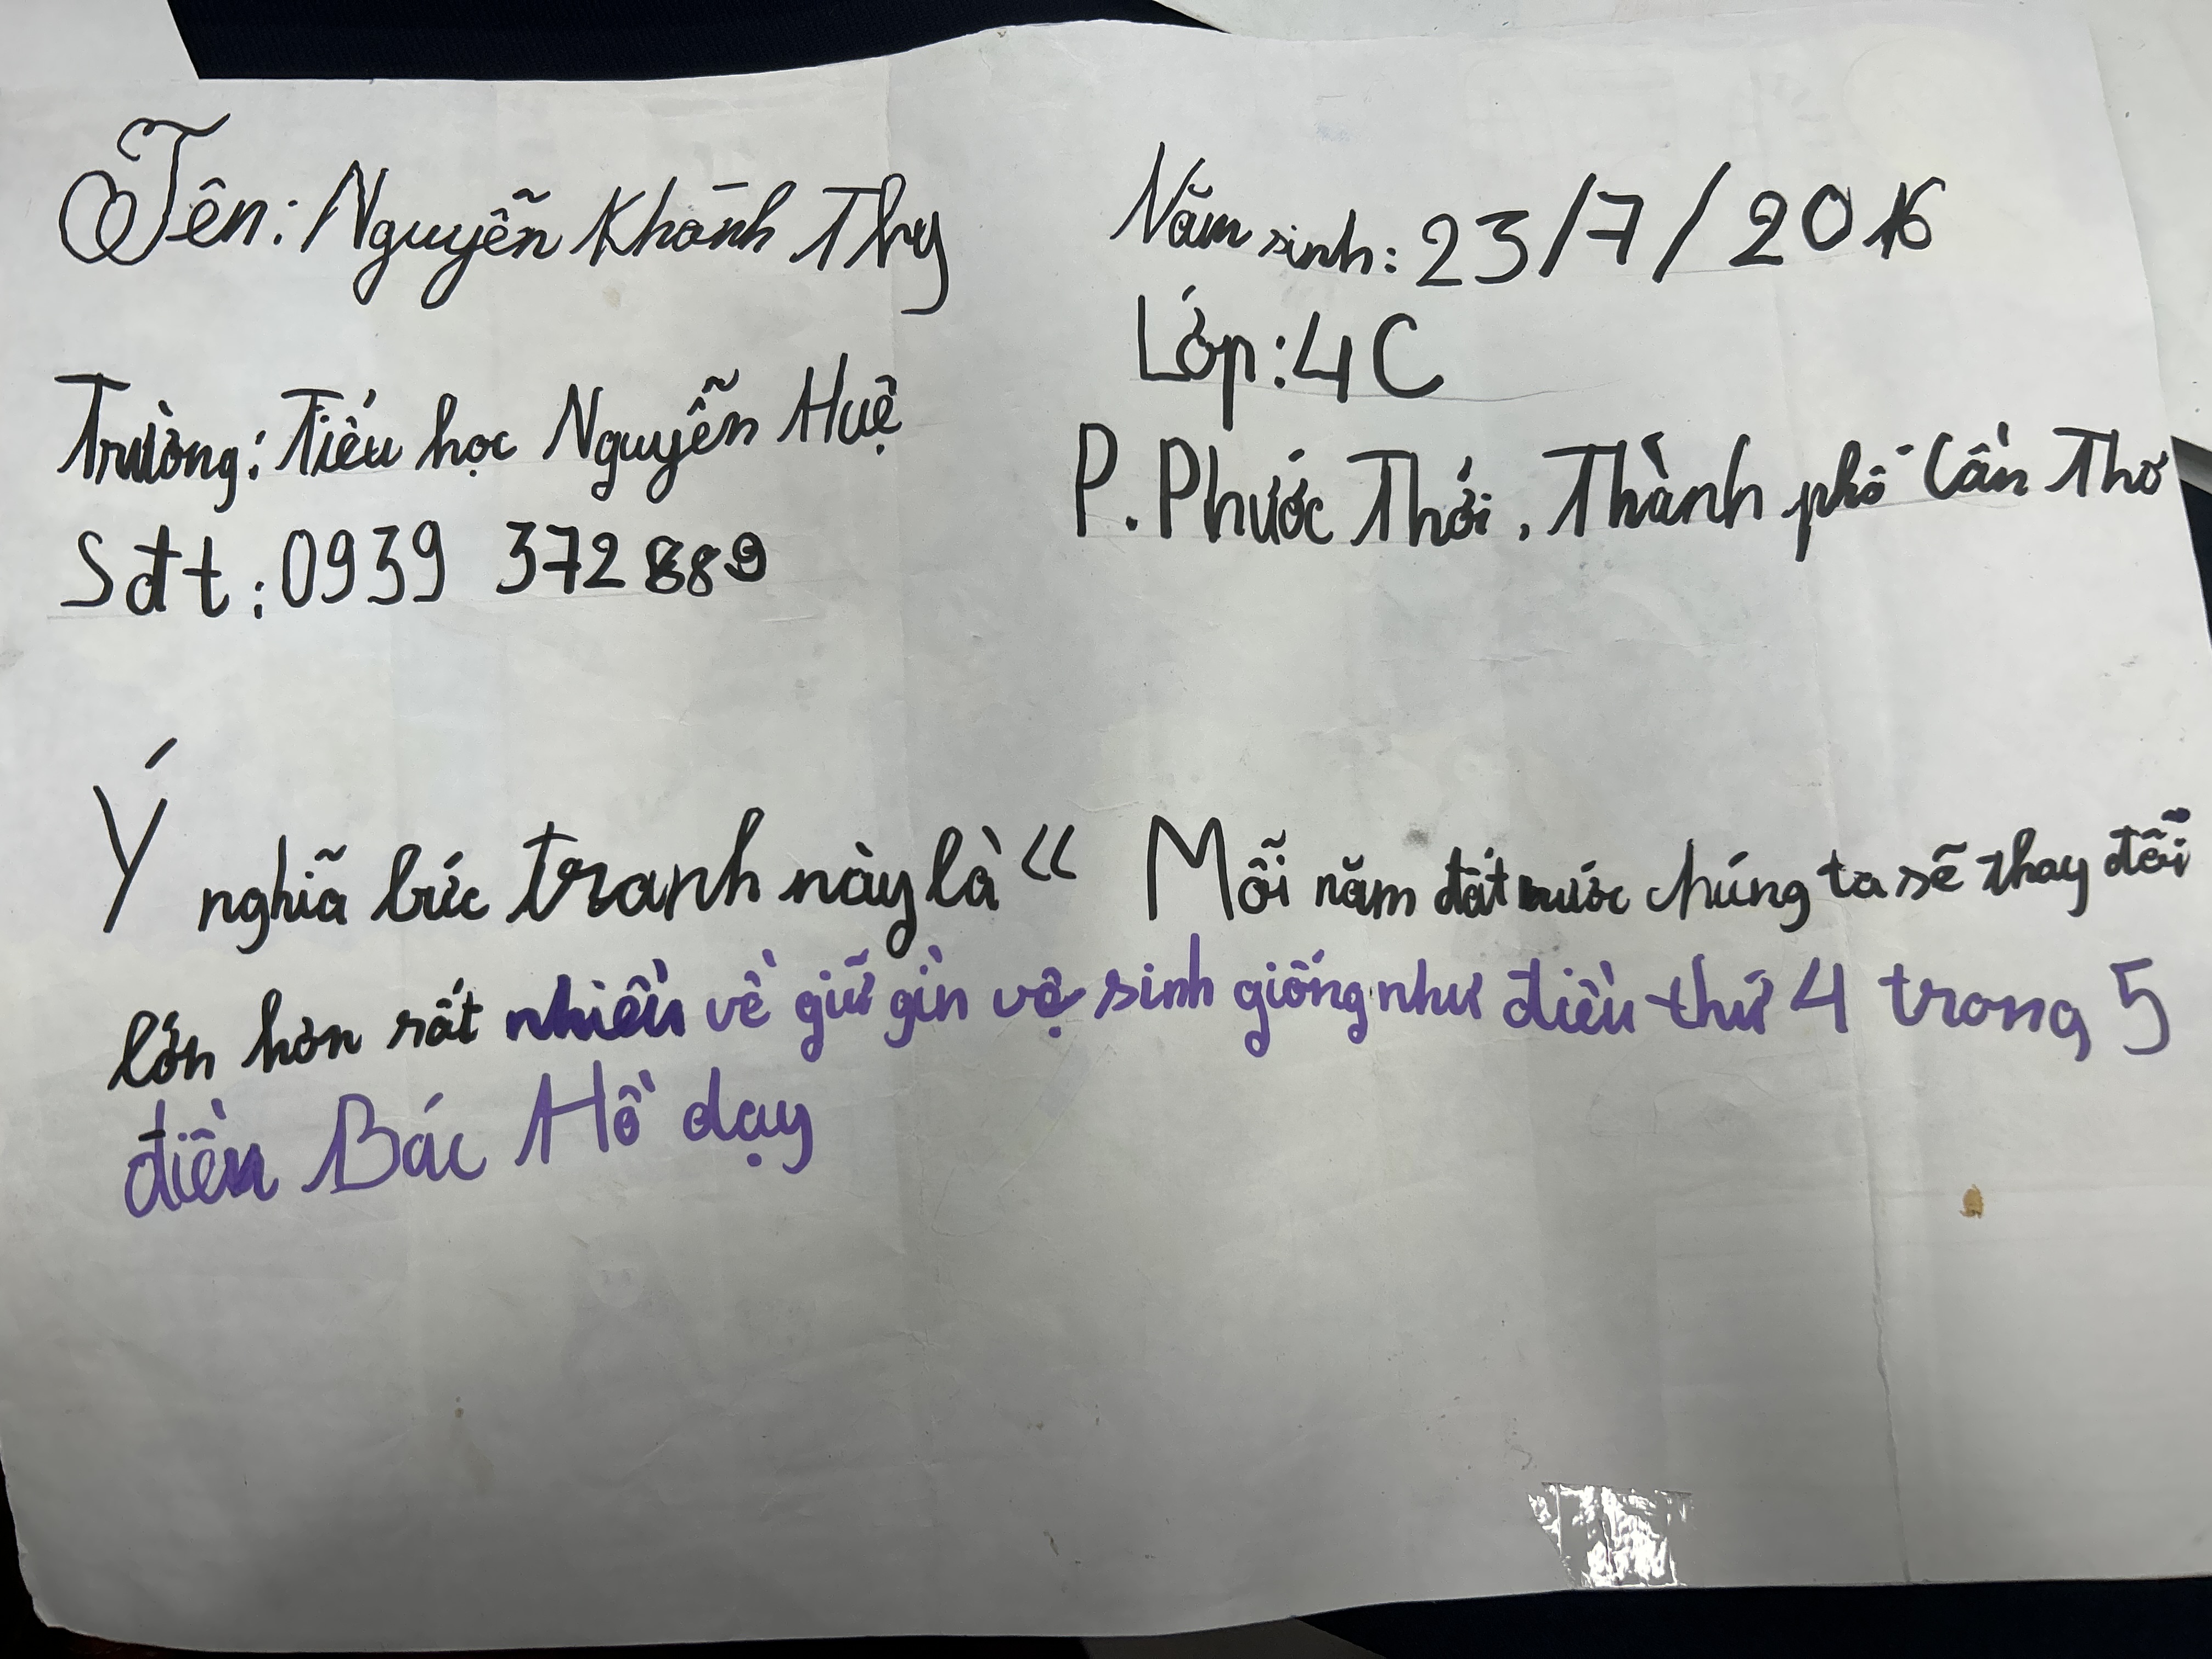 Tên: Nguyễn Khánh Thy
Năm sinh: 23/7/2016
Lớp: 4C
Trường: Tiểu học Nguyễn Huệ
P. Phước Thới, Thành phố Cần Thơ
Sđt: 0939 372 889
Ý nghĩa bức tranh này là “ Mỗi năm đất nước chúng ta sẽ thay đổi
lớn hơn rất nhiều về giữ gìn vệ sinh giống như điều thứ 4 trong 5
điều Bác Hồ dạy